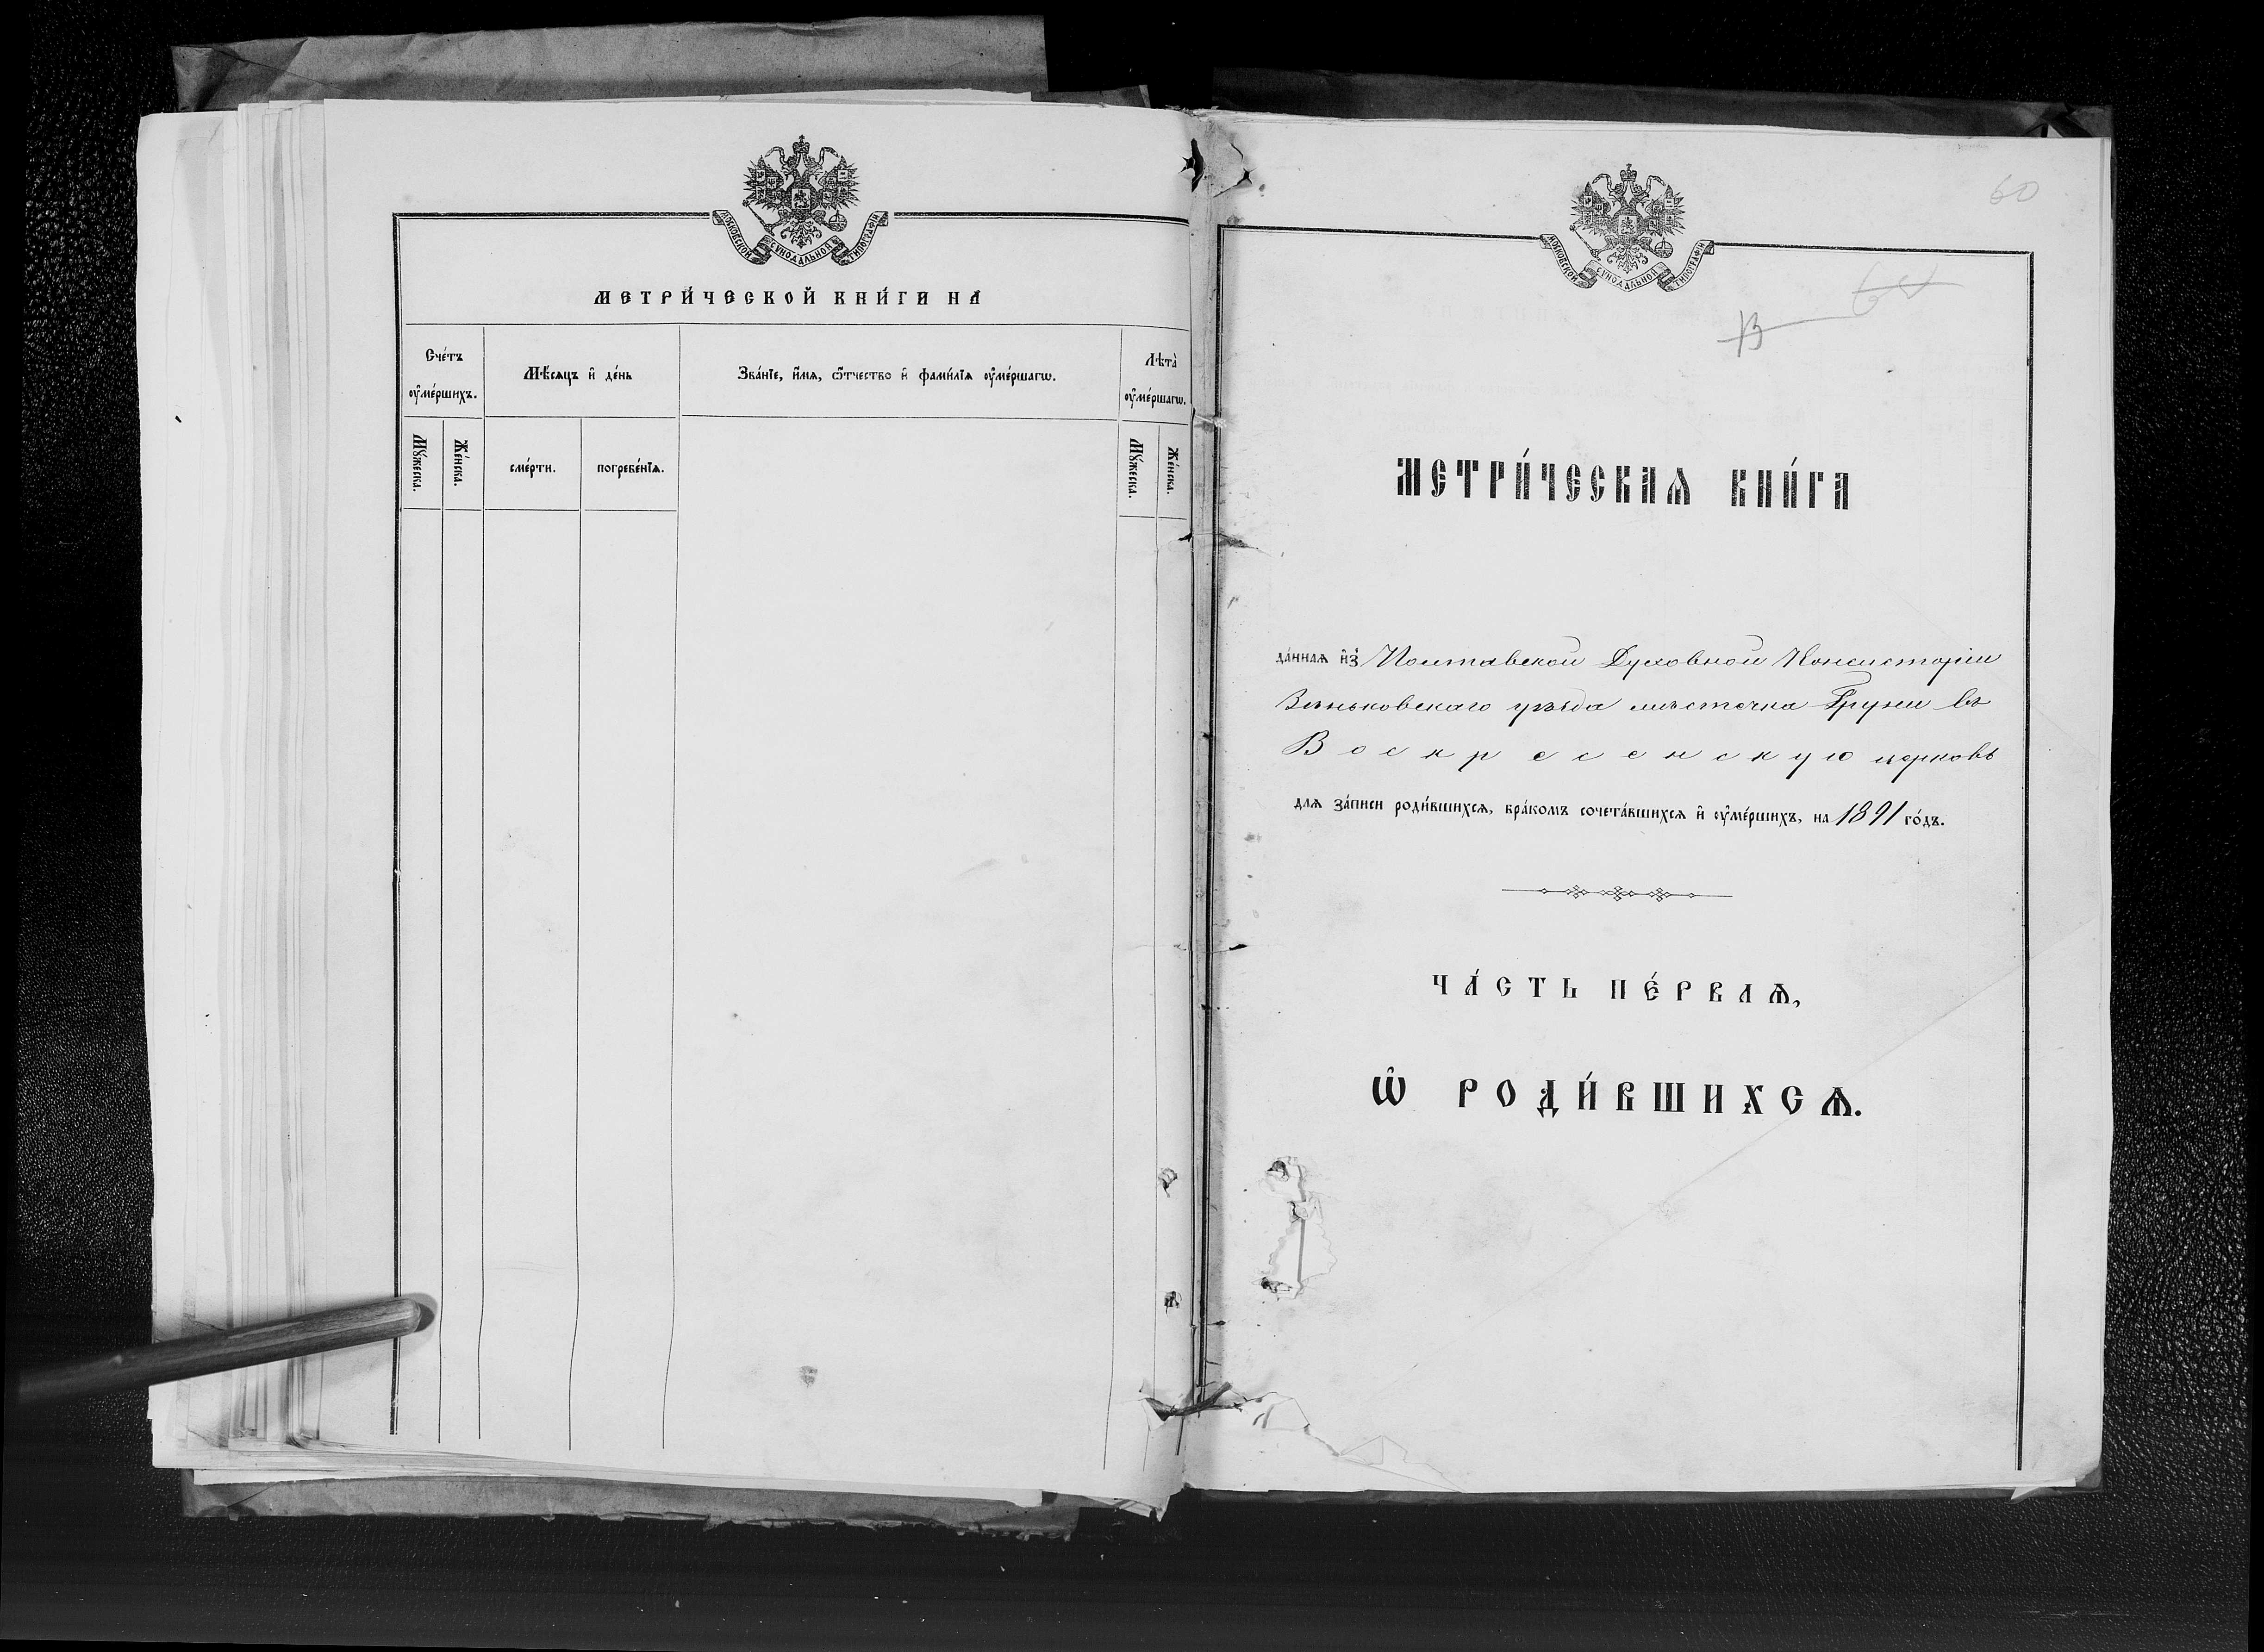 МОСКОВСКОЙ СѴНОДАЛЬНОЙ ТИПОГРАФІИ
МЕТРИ́ЧЕСКОЙ КНИ́ГИ НА
Сче́тъ ᲂу҆ме́ршихъ.
Мѣ́сяцъ и҆ де́нь
Зва́нїе, и҆́мѧ, ѻ҆́тчество и҆ фами́лїѧ ᲂу҆ме́ршагѡ.
Лѣта̀ ᲂу҆ме́ршагѡ.
Мꙋ́жеска.
Же́нска.
сме́рти.
погребе́нїѧ.
Мꙋ́жеска.
Же́нска.
60
МОСКОВСКОЙ СѴНОДАЛЬНОЙ ТИПОГРАФІИ
МЕТРИ́ЧЕСКАѦ КНИ́ГА
да́ннаѧ и҆з̾ Полтавской Духовной Консисторіи
Зѣньковскаго уѣзда мѣстечка Груни въ
Воскресенскую церковь
длѧ за́писи роди́вшихсѧ, бра́комъ сочета́вшихсѧ и҆ ᲂу҆ме́ршихъ, на 1891 го́дъ.
ЧА́СТЬ ПЕ́РВАѦ,
Ѡ҆ РОДИ́ВШИХСѦ.